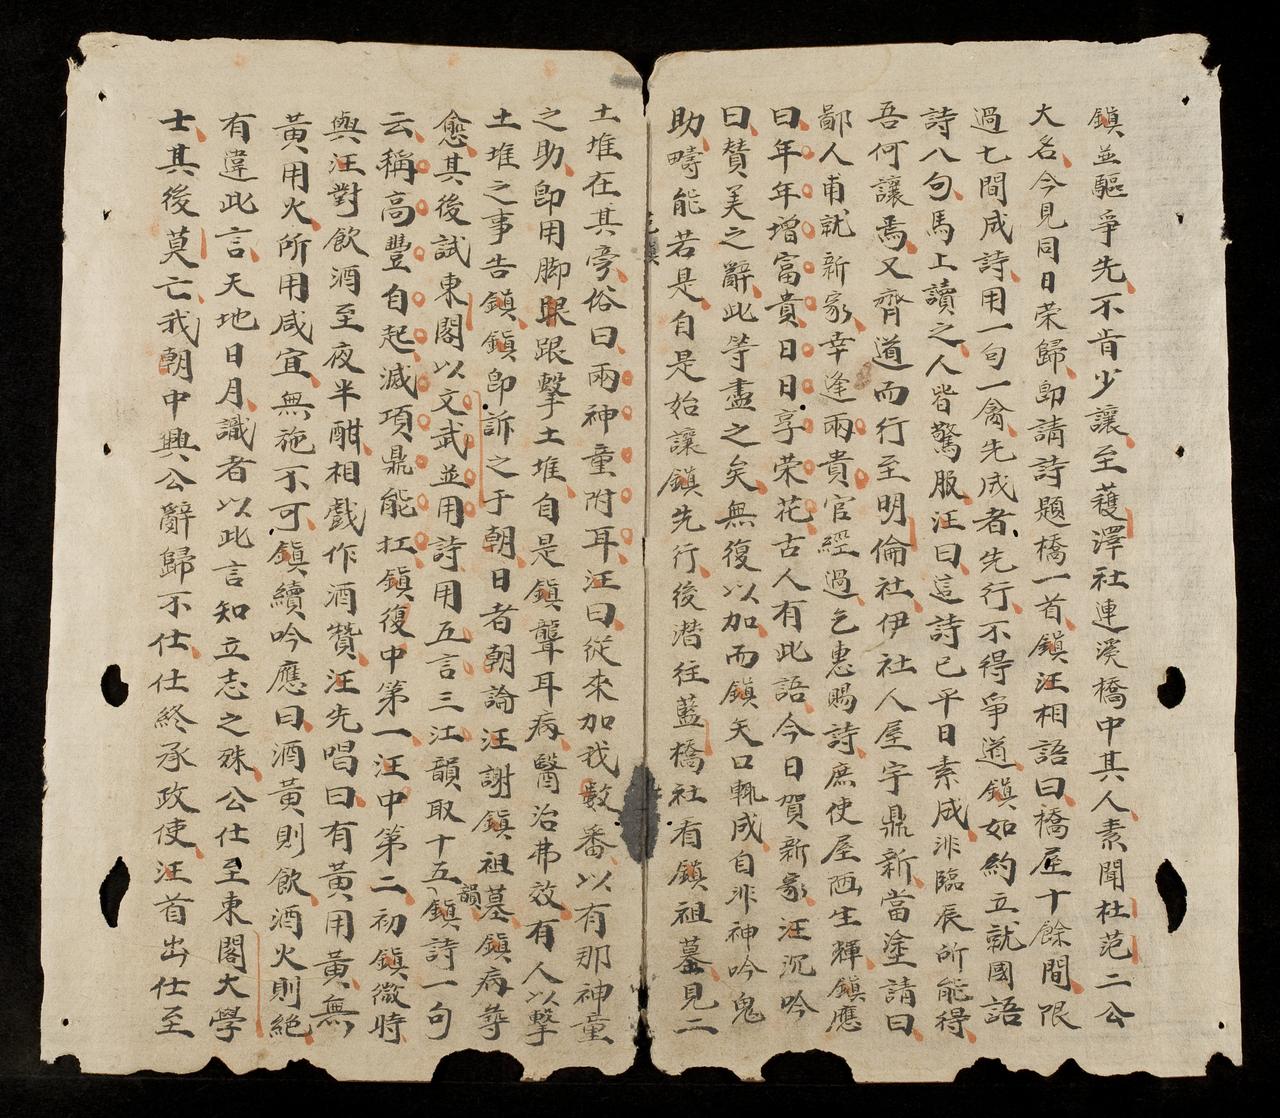 鎮並驅爭先不肯少讓至蒦澤社連溪橋中其人素聞杜范二公
大名今見同日荣歸卽請詩題橋一首鎮汪相語曰橋屋十餘間限
過七間成詩用一句一禽先成者先行不得爭道鎮如約立就國語
詩八句馬上讀之人皆驚服汪曰這詩已平日素成非臨辰所能得
吾何讓焉又齊道而行至明倫社伊社人屋宇鼎新當塗請曰
鄙人甫就新家幸逢兩貴官經過乞惠賜詩庶使屋陋生輝鎮應
曰年年增富貴日日享荣花古人有此語今日賀新家汪沉吟
曰贊美之辭此等盡之矣無復以加而鎮矢口輒成自非神吟鬼
助疇能若是自是始讓鎮先行後潛往藍橋社有鎮祖墓見二
土堆在其旁俗曰兩神童附耳汪曰從來加我数番以有那神童
之助卽用脚踉跟擊土堆自是鎮聾耳病醫治弗效有人以擊
土堆之事告鎮鎮卽訴之于朝日者朝論汪謝鎮祖墓鎮病荨
愈其後試東閣以文武並用詩用五言三江韻取十五韻鎮詩一句
云稱高豐自起滅項鼎能扛鎮復中第一汪中第二初鎮微時
與汪對飲酒至夜半酣相戲作酒贊汪先唱曰有黃用黃無
黃用火所用咸宜無施不可鎮續吟應曰酒黃則飲酒火則絕
有違此言天地日月識者以此言知立志之殊公仕至東閣大學
士其後莫亡我朝中興公辭歸不仕仕終承政使汪首出仕至